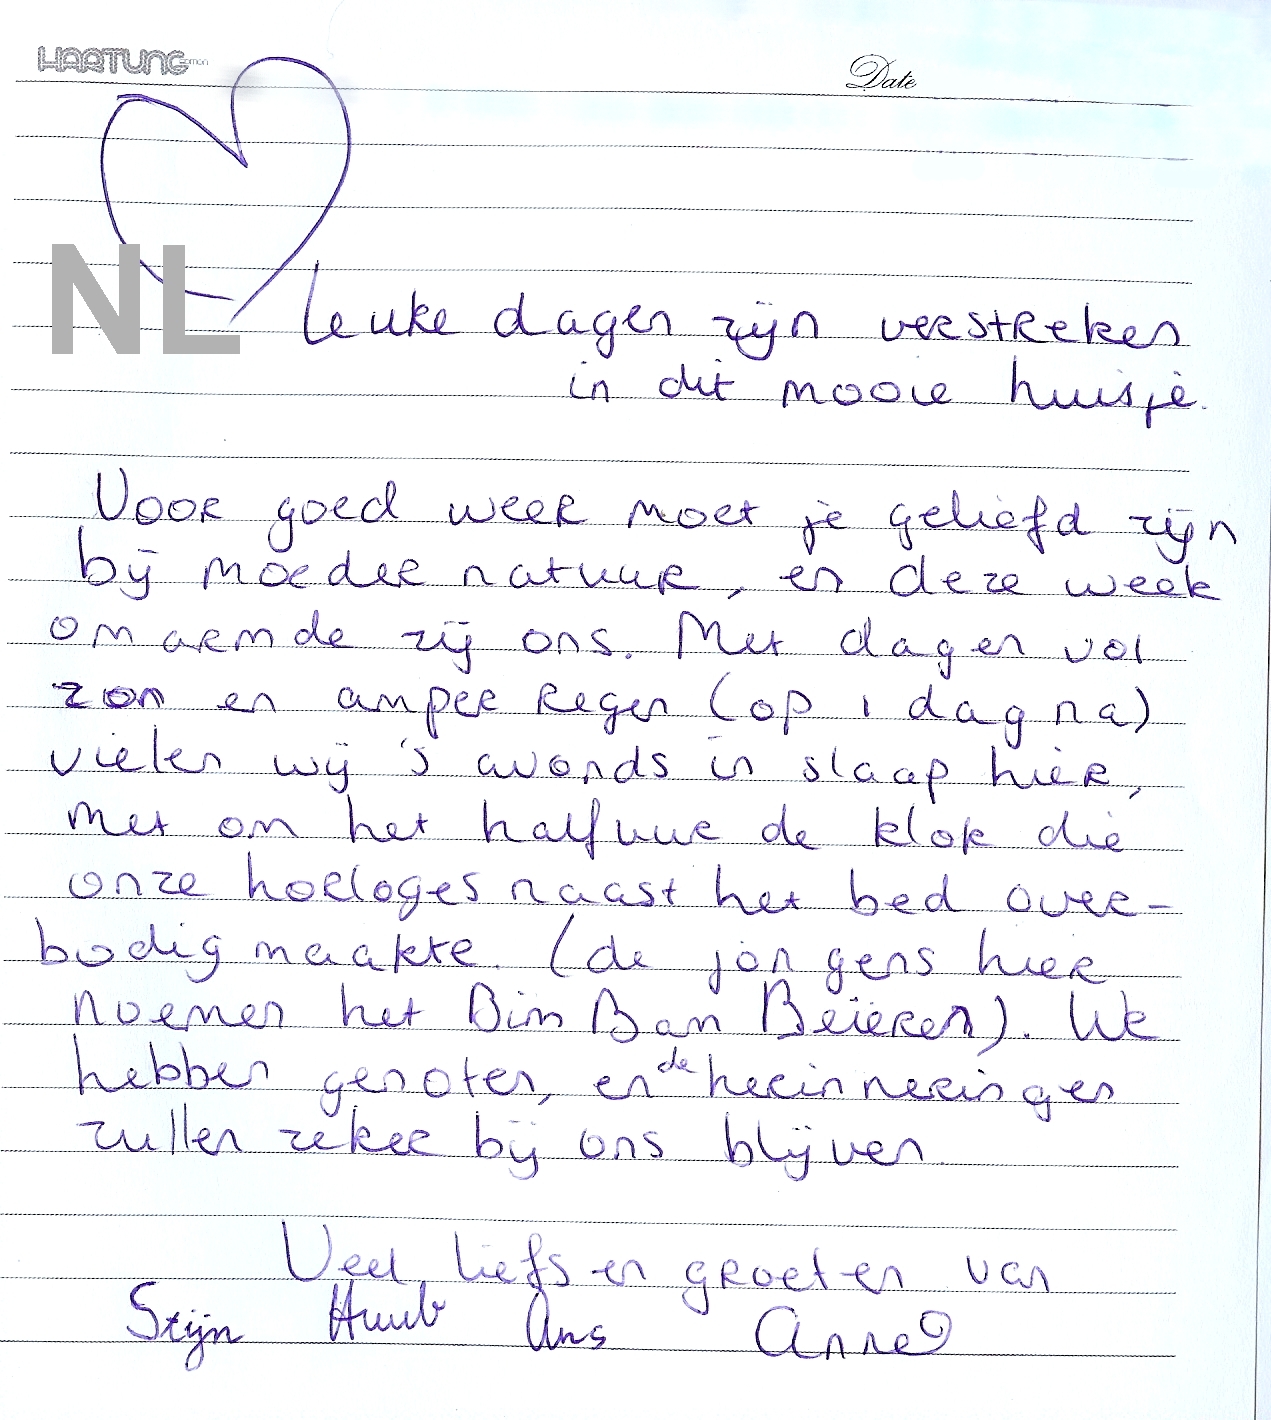 HARTUNG
Date
NL
Leuke dagen zijn verstreken
in dit mooie huisje.
Voor goed weer moet je geliefd zijn
bij moeder natuur, en deze week
omarmde zij ons. Met dagen vol
zon en amper regen (op 1 dag na)
vielen wij 's avonds in slaap hier,
met om het halfuur de klok die
onze horloges naast het bed over-
bodig maakte. (de jongens hier
noemen het Bim Bam Beieren). We
hebben genoten, en de herinneringen
zullen zeker bij ons blijven.
Veel liefs en groeten van
Stijn Huub Ans Anne